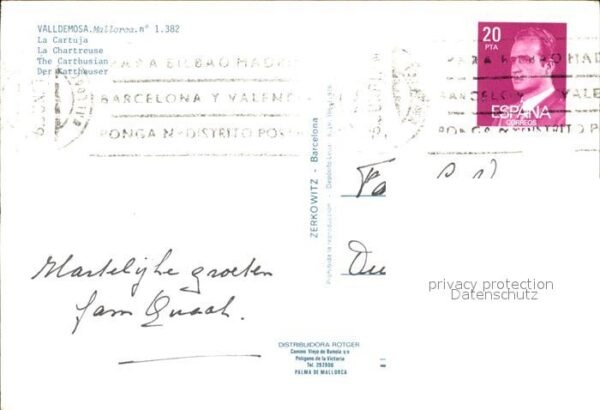 VALLDEMOSA.Mallorca.nº 1.382
La Cartuja
La Chartreuse
The Carthusian
Der Karthäuser
PARA BILBAO MADR
BARCELONA Y VALEN
PONGA Nº DISTRITO POS
20
PTA
ESPAÑA
CORREOS
ZERKOWITZ - Barcelona
Prohibida la reproducción
Hartelijke groeten
fam Quaak.
privacy protection
Datenschutz
DISTRIBUIDORA ROTGER
Camino Viejo de Buñola s/n
Polígono de la Victoria
Tel. 292900
PALMA DE MALLORCA